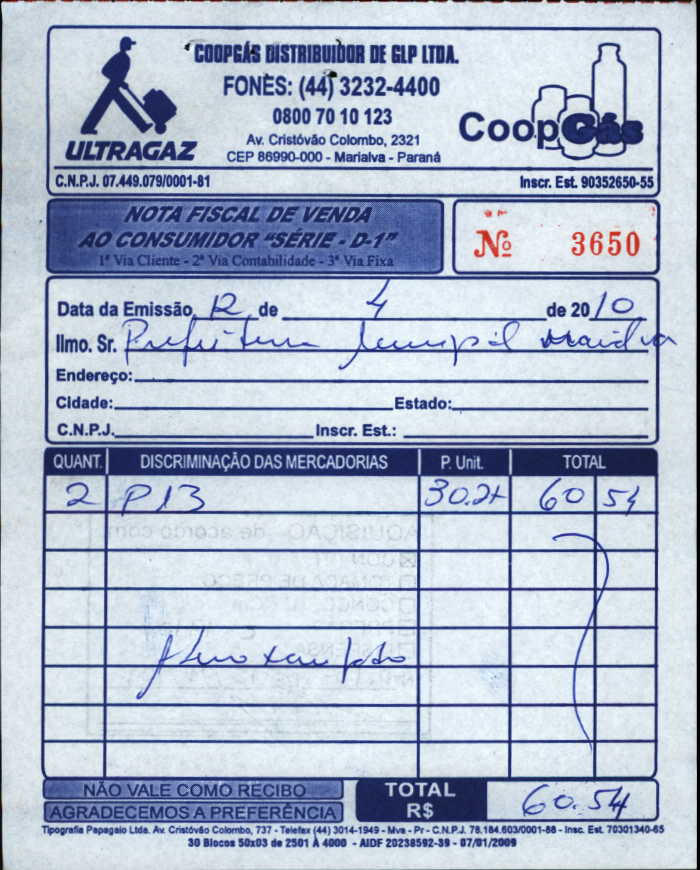 COOPGÁS DISTRIBUIDOR DE GLP LTDA.
FONES: (44) 3232-4400
0800 70 10 123
Av. Cristóvão Colombo, 2321
CEP 86990-000 - Marialva - Paraná
ULTRAGAZ
CoopGás
C.N.P.J. 07.449.079/0001-81 Inscr. Est. 90352650-55
NOTA FISCAL DE VENDA
AO CONSUMIDOR "SÉRIE - D-1"
1ª Via Cliente - 2ª Via Contabilidade - 3ª Via Fixa
Nº 3650
Data da Emissão 12 de 4 de 2010
Ilmo. Sr. Prefeitura
Endereço:
Cidade: Estado:
C.N.P.J. Inscr. Est.:
QUANT. DISCRIMINAÇÃO DAS MERCADORIAS P. Unit. TOTAL
2 P13 30.27 60 54
AQUISIÇÃO de acordo com
NÃO VALE COMO RECIBO
AGRADECEMOS A PREFERÊNCIA
TOTAL
R$ 60.54
Tipografia Papagaio Ltda. Av. Cristóvão Colombo, 737 - Telefax (44) 3014-1949 - Mva - Pr - C.N.P.J. 78.184.603/0001-88 - Insc. Est. 70301340-65
30 Blocos 50x03 de 2501 À 4000 - AIDF 20238592-39 - 07/01/2009